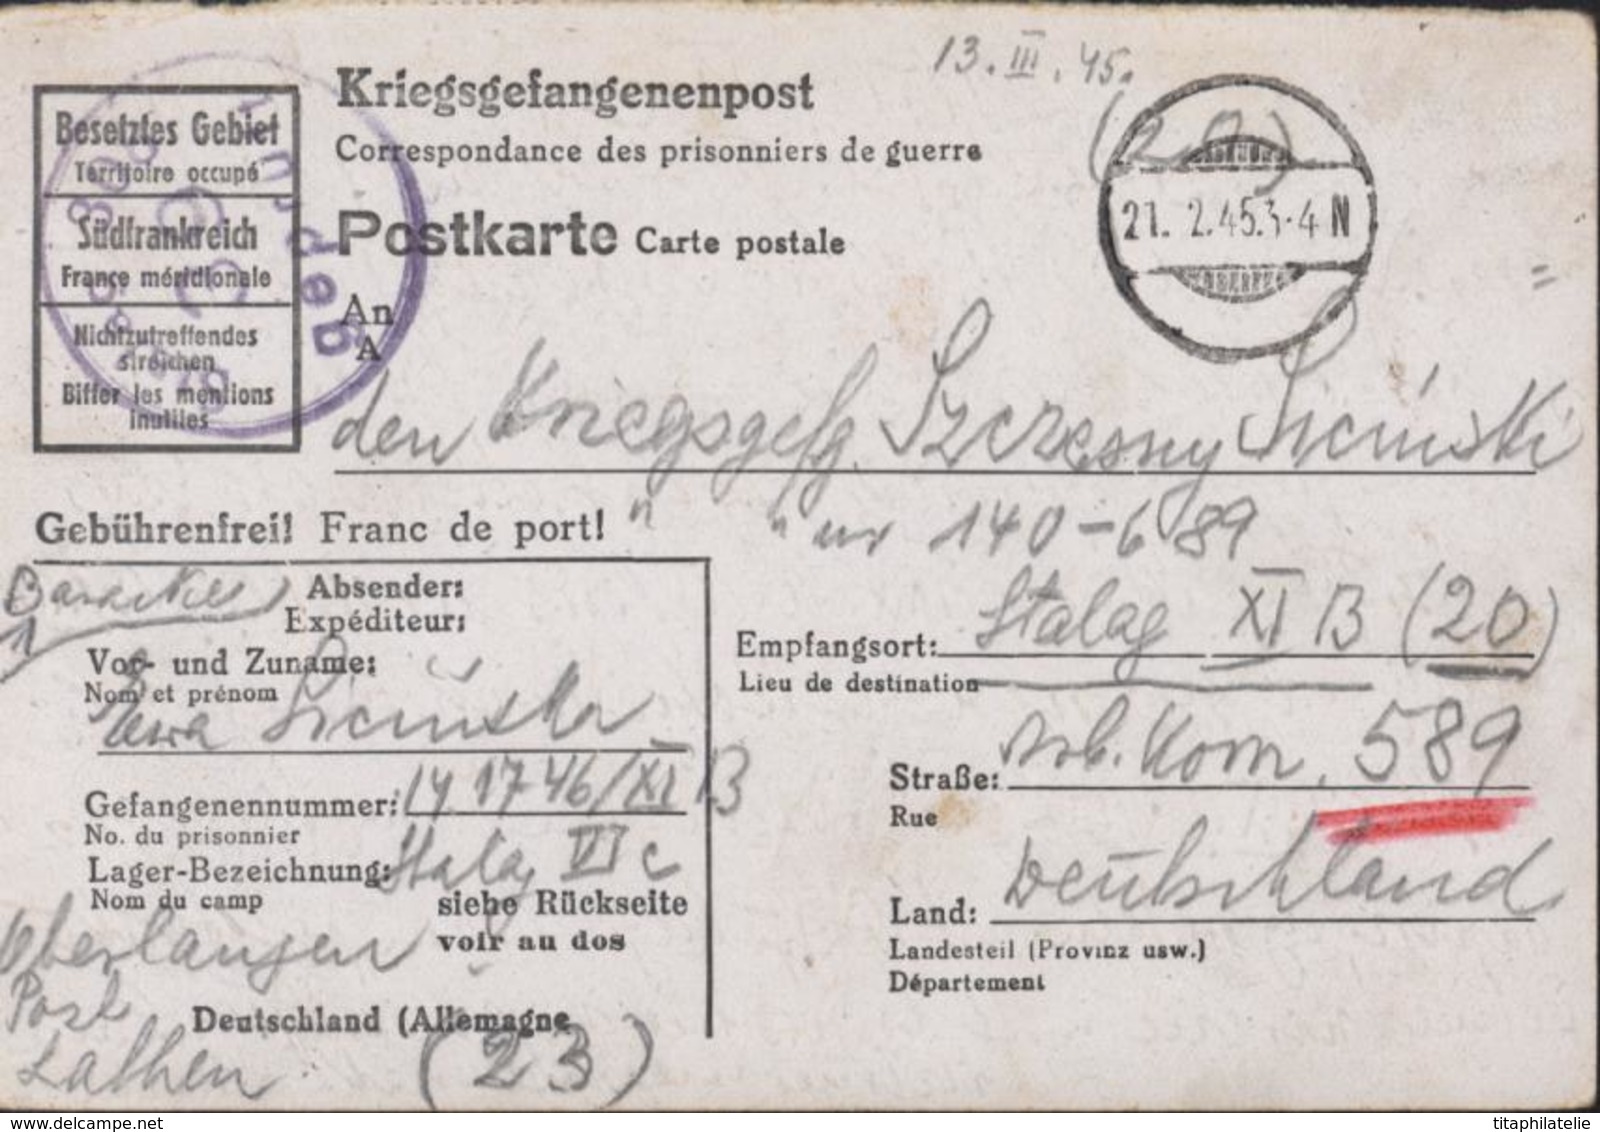 13. III. 45.
(20)
Besetztes Gebiet
Territoire occupé
Südfrankreich
France méridionale
Nichtzutreffendes
streichen
Biffer les mentions
inutiles
Kriegsgefangenenpost
Correspondance des prisonniers de guerre
Postkarte Carte postale
21. 2.45.3-4 N
An
A
den Kriegsgefg. Szczesny Siciński
" " nr 140-689
Gebührenfrei! Franc de port!
Baracke
1
Absender:
Expéditeur:
Vor- und Zuname:
Nom et prénom
Ewa Sicińska
Gefangenennummer: 141746/XI B
No. du prisonnier
Lager-Bezeichnung: Stalag VI c
Nom du camp
siehe Rückseite
voir au dos
Oberlangen
Post
Lathen
Deutschland (Allemagne
(23)
Empfangsort: Stalag XI B (20)
Lieu de destination
Straße: Arb. Kom. 589
Rue
Land: Deutschland
Landesteil (Provinz usw.)
Département
delcampe.net
titaphilatelie